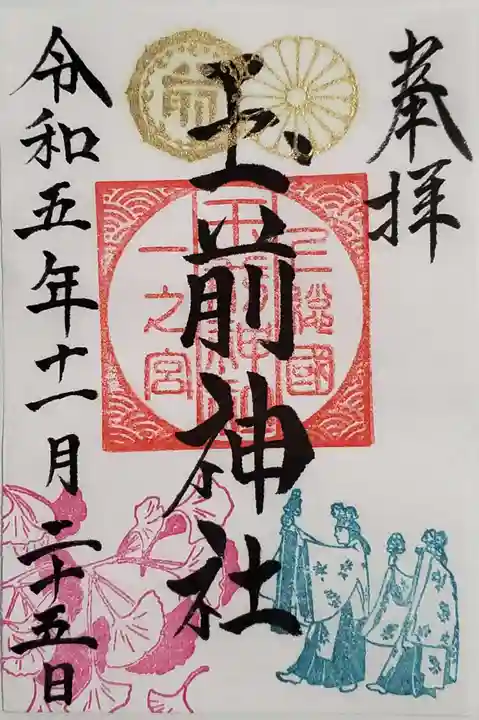 奉拝
玉前神社
上総國
玉前神社
一之宮
令和五年十一月二十五日